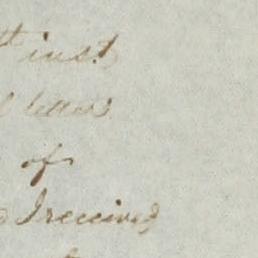 inst
letter
of
I received